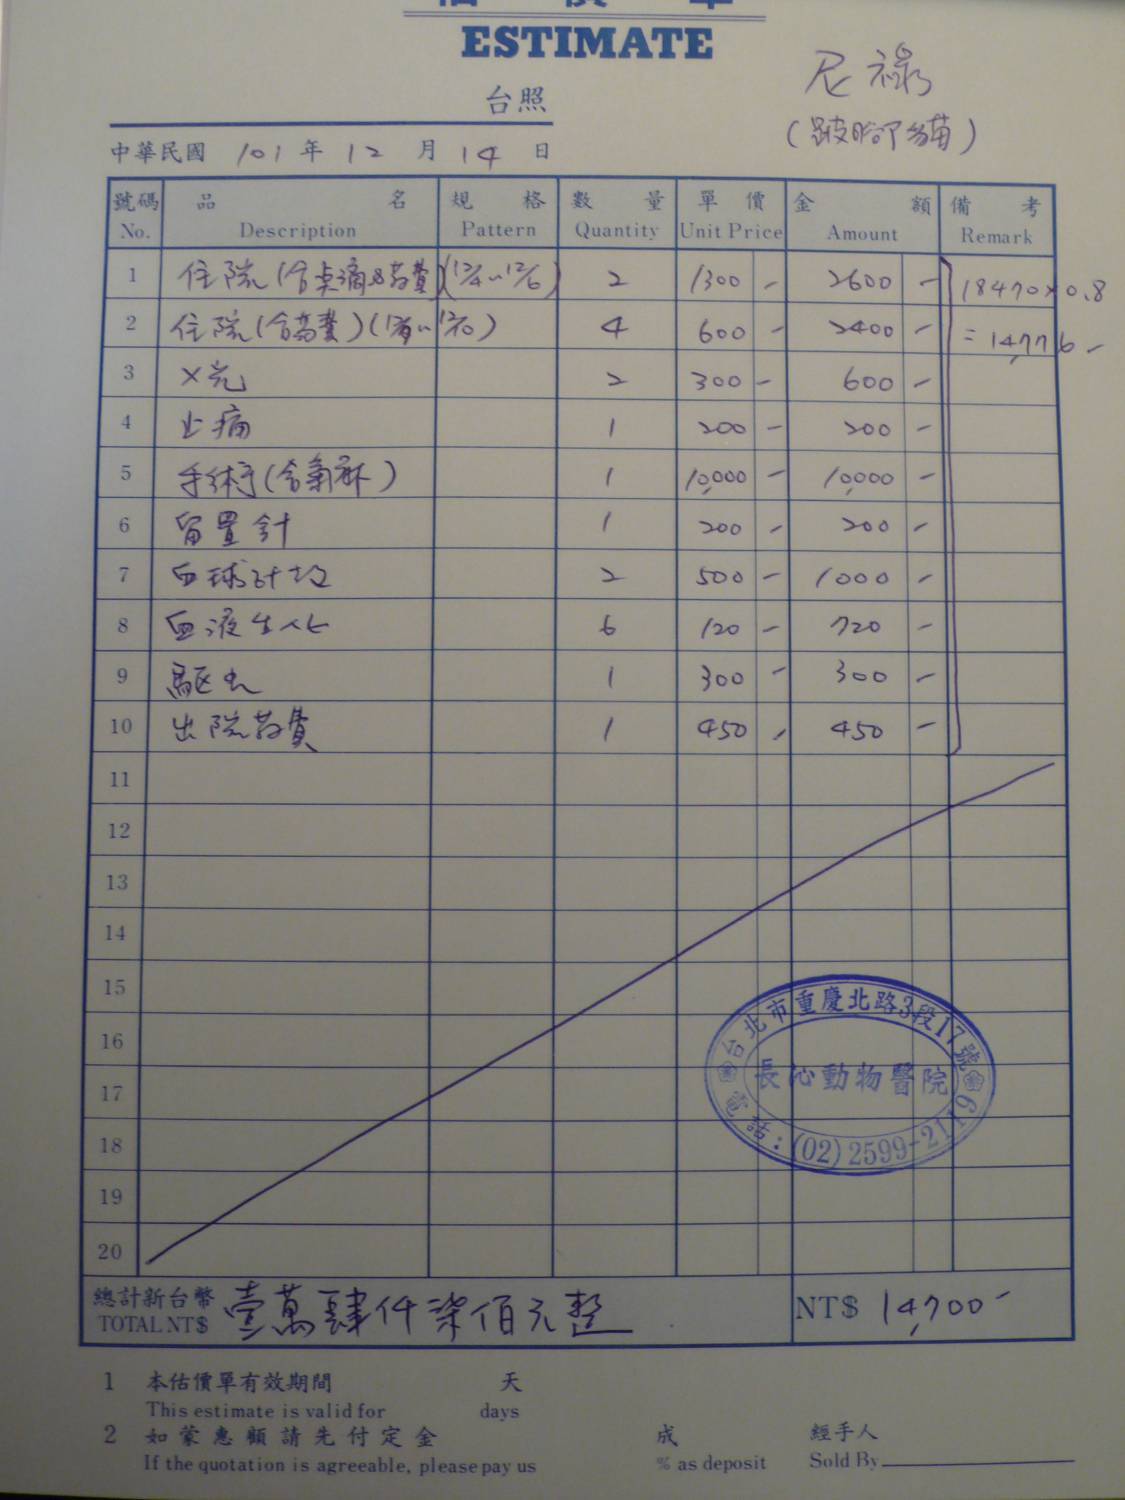 估 價 單
ESTIMATE
尼祿
(跛腳貓)
台照
中華民國 101 年 12 月 14 日
號碼 品 名 規 格 數 量 單 價 金 額 備 考
No. Description Pattern Quantity Unit Price Amount Remark
1 住院(含点滴&葯費)(12/4~12/6) 2 1300 - 2600 - 18470×0.8
2 住院(含葯費) 4 600 - 2400 - = 14,776 -
3 X光 2 300 - 600 -
4 止痛 1 200 - 200 -
5 手術(含氣麻) 1 10,000 - 10,000 -
6 留置針 1 200 - 200 -
7 血球計 2 500 - 1000 -
8 血液生化 6 120 - 720 -
9 驅虫 1 300 - 300 -
10 出院葯費 1 450 - 450 -
11
12
13
14
15
16
17
18
19
20
台北市重慶北路3段17號
長沁動物醫院
電話:(02)2599-2119
總計新台幣 壹萬肆仟柒佰元整
TOTAL NT$ NT$ 14,700-
1 本估價單有效期間 天
This estimate is valid for days
2 如蒙惠顧請先付定金 成 經手人
If the quotation is agreeable, please pay us % as deposit Sold By